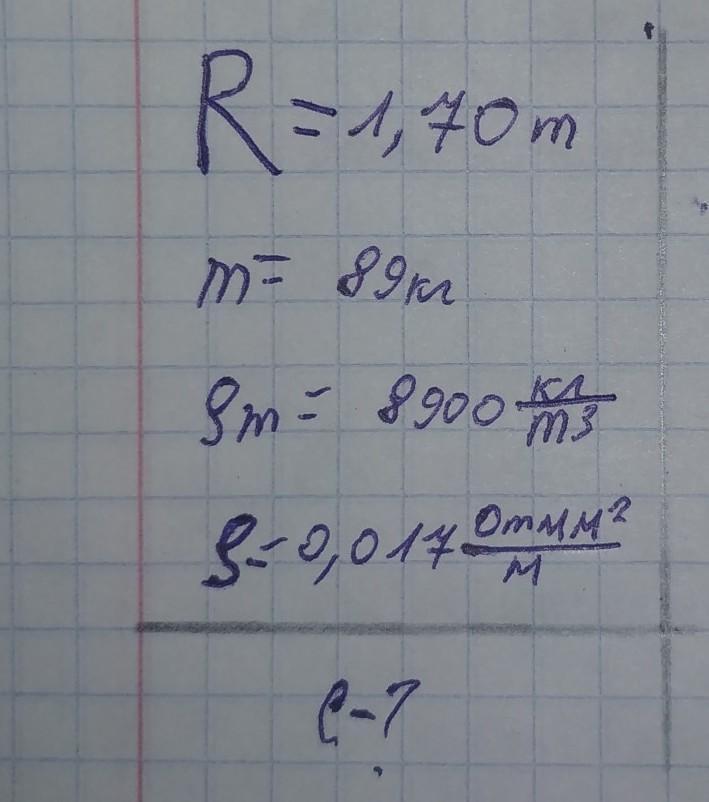 R = 1,70m
m = 89кг
ρm = 8900 кг/m3
ρ = 0,017 Omмм²/м
ℓ - ?